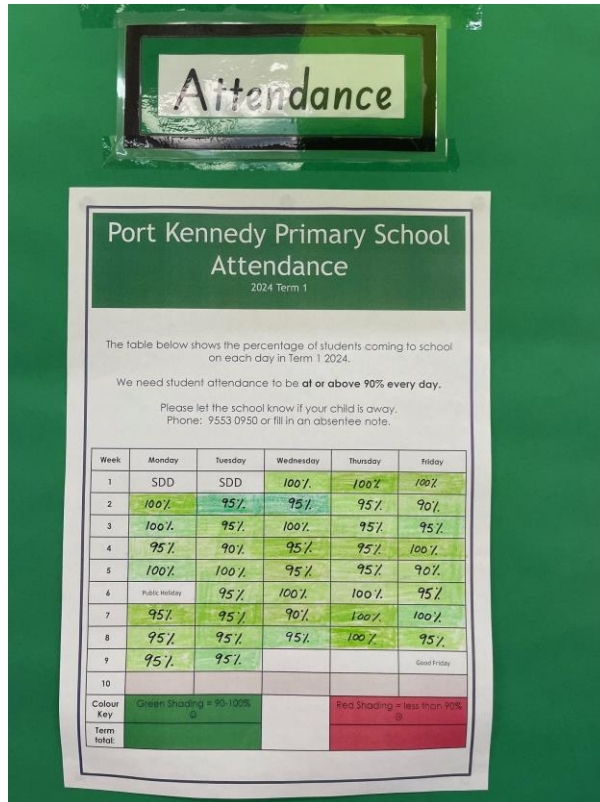 Attendance
Port Kennedy Primary School
Attendance
2024 Term 1
The table below shows the percentage of students coming to school
on each day in Term 1 2024.
We need student attendance to be at or above 90% every day.
Please let the school know if your child is away.
Phone: 9553 0950 or fill in an absentee note.
Week Monday Tuesday Wednesday Thursday Friday
1 SDD SDD 100% 100% 100%
2 100% 95% 95% 95% 90%
3 100% 95% 100% 95% 95%
4 95% 90% 95% 95% 100%
5 100% 100% 95% 95% 90%
6 Public Holiday 95% 100% 100% 95%
7 95% 95% 90% 100% 100%
8 95% 95% 95% 100% 95%
9 95% 95% Good Friday
10
Colour Key Green Shading = 90-100% ☺ Red Shading = less than 90% ☹
Term total: